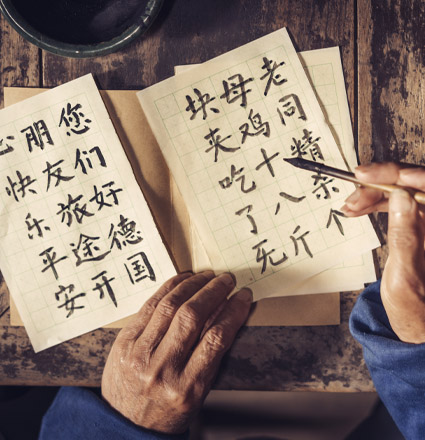 老同精个
母鸡十八斤
块夹吃了无
您们好德国
朋友旅途开
心快乐平安